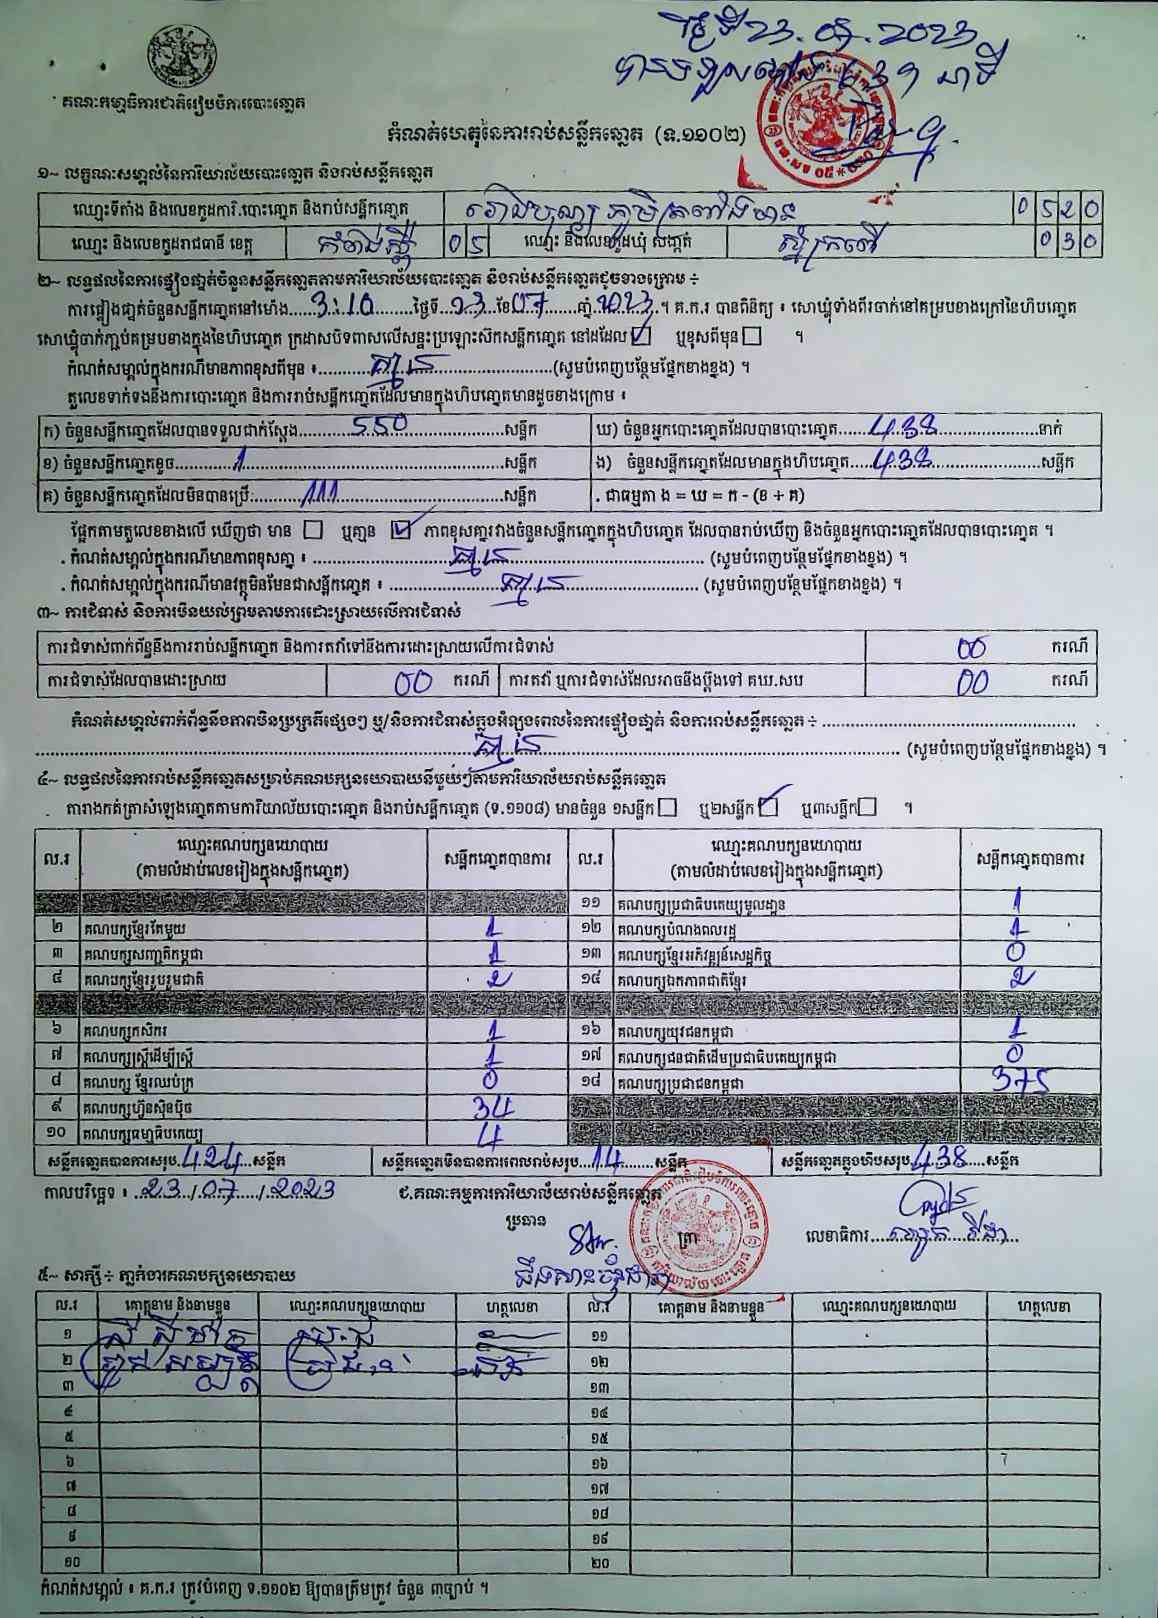 ថ្ងៃទី 23.07.2023
គណៈកម្មាធិការជាតិរៀបចំការបោះឆ្នោត
កំណត់ហេតុនៃការរាប់សន្លឹកឆ្នោត (ទ.១១០២)
១~ លក្ខណៈសម្គាល់នៃការិយាល័យបោះឆ្នោត និងរាប់សន្លឹកឆ្នោត
ឈ្មោះទីតាំង និងលេខកូដការិ.បោះឆ្នោត និងរាប់សន្លឹកឆ្នោត រោងបុណ្យ ភូមិត្រពាំងមាន 0520
ឈ្មោះ និងលេខកូដរាជធានី ខេត្ត កំពង់ស្ពឺ 05 ឈ្មោះ និងលេខកូដឃុំ សង្កាត់ ស្នំក្រពើ 030
២~ លទ្ធផលនៃការផ្ទៀងផ្ទាត់ចំនួនសន្លឹកឆ្នោតតាមការិយាល័យបោះឆ្នោត និងរាប់សន្លឹកឆ្នោតដូចខាងក្រោម ÷
ការផ្ទៀងផ្ទាត់ចំនួនសន្លឹកឆ្នោតនៅម៉ោង 3:10 ថ្ងៃទី 23 ខែ 07 ឆ្នាំ 2023 ។ គ.ក.រ បានពិនិត្យ ៖ សោឃ្លុំទាំងពីរចាក់នៅគម្របខាងក្រៅនៃហិបឆ្នោត
សោឃ្លុំចាក់ភ្ជាប់គម្របខាងក្នុងនៃហិបឆ្នោត ក្រដាសបិទពាសលើសន្ទះប្រឡោះស៊កសន្លឹកឆ្នោត នៅដដែល ☑ ឬខុសពីមុន ☐ ។
កំណត់សម្គាល់ក្នុងករណីមានភាពខុសពីមុន ៖ គ្មាន (សូមបំពេញបន្ថែមផ្នែកខាងខ្នង) ។
តួលេខទាក់ទងនឹងការបោះឆ្នោត និងការរាប់សន្លឹកឆ្នោតដែលមានក្នុងហិបឆ្នោតមានដូចខាងក្រោម ៖
ក) ចំនួនសន្លឹកឆ្នោតដែលបានទទួលជាក់ស្តែង 550 សន្លឹក ឃ) ចំនួនអ្នកបោះឆ្នោតដែលបានបោះឆ្នោត 438 នាក់
ខ) ចំនួនសន្លឹកឆ្នោតខូច 1 សន្លឹក ង) ចំនួនសន្លឹកឆ្នោតដែលមានក្នុងហិបឆ្នោត 438 សន្លឹក
គ) ចំនួនសន្លឹកឆ្នោតដែលមិនបានប្រើ 111 សន្លឹក . ជាធម្មតា ង = ឃ = ក - (ខ + គ)
ផ្អែកតាមតួលេខខាងលើ ឃើញថា មាន ☐ ឬគ្មាន ☑ ភាពខុសគ្នារវាងចំនួនសន្លឹកឆ្នោតក្នុងហិបឆ្នោត ដែលបានរាប់ឃើញ និងចំនួនអ្នកបោះឆ្នោតដែលបានបោះឆ្នោត ។
. កំណត់សម្គាល់ក្នុងករណីមានភាពខុសគ្នា ៖ គ្មាន (សូមបំពេញបន្ថែមផ្នែកខាងខ្នង) ។
. កំណត់សម្គាល់ក្នុងករណីមានវត្ថុមិនមែនជាសន្លឹកឆ្នោត ៖ គ្មាន (សូមបំពេញបន្ថែមផ្នែកខាងខ្នង) ។
៣~ ការជំទាស់ និងការមិនយល់ព្រមតាមការដោះស្រាយលើការជំទាស់
ការជំទាស់ពាក់ព័ន្ធនឹងការរាប់សន្លឹកឆ្នោត និងការតវ៉ាទៅនឹងការដោះស្រាយលើការជំទាស់ 00 ករណី
ការជំទាស់ដែលបានដោះស្រាយ 00 ករណី ការតវ៉ា ឬការជំទាស់ដែលអាចនឹងប្តឹងទៅ គឃ.សប 00 ករណី
កំណត់សម្គាល់ពាក់ព័ន្ធនឹងភាពមិនប្រក្រតីផ្សេងៗ ឬ/និងការជំទាស់ក្នុងអំឡុងពេលនៃការផ្ទៀងផ្ទាត់ និងការរាប់សន្លឹកឆ្នោត ÷
គ្មាន (សូមបំពេញបន្ថែមផ្នែកខាងខ្នង) ។
៤~ លទ្ធផលនៃការរាប់សន្លឹកឆ្នោតសម្រាប់គណបក្សនយោបាយនីមួយៗតាមការិយាល័យរាប់សន្លឹកឆ្នោត
តារាងកត់ត្រាសំឡេងឆ្នោតតាមការិយាល័យបោះឆ្នោត និងរាប់សន្លឹកឆ្នោត (ទ.១១០៨) មានចំនួន ១សន្លឹក ☐ ឬ២សន្លឹក ☑ ឬ៣សន្លឹក ☐ ។
ល.រ ឈ្មោះគណបក្សនយោបាយ (តាមលំដាប់លេខរៀងក្នុងសន្លឹកឆ្នោត) សន្លឹកឆ្នោតបានការ ល.រ ឈ្មោះគណបក្សនយោបាយ (តាមលំដាប់លេខរៀងក្នុងសន្លឹកឆ្នោត) សន្លឹកឆ្នោតបានការ
១១ គណបក្សប្រជាធិបតេយ្យមូលដ្ឋាន 1
២ គណបក្សខ្មែរតែមួយ 1 ១២ គណបក្សបំណងពលរដ្ឋ 1
៣ គណបក្សសញ្ជាតិកម្ពុជា 1 ១៣ គណបក្សខ្មែរអភិវឌ្ឍន៍សេដ្ឋកិច្ច 0
៤ គណបក្សខ្មែររួបរួមជាតិ 2 ១៤ គណបក្សឯកភាពជាតិខ្មែរ 2
៦ គណបក្សកសិករ 1 ១៦ គណបក្សយុវជនកម្ពុជា 1
៧ គណបក្សស្ត្រីដើម្បីស្ត្រី 1 ១៧ គណបក្សជនជាតិដើមប្រជាធិបតេយ្យកម្ពុជា 0
៨ គណបក្ស ខ្មែរឈប់ក្រ 0 ១៨ គណបក្សប្រជាជនកម្ពុជា 375
៩ គណបក្សហ៊្វុនស៊ិនប៉ិច 34
១០ គណបក្សធម្មាធិបតេយ្យ 4
សន្លឹកឆ្នោតបានការសរុប 424 សន្លឹក សន្លឹកឆ្នោតមិនបានការពេលរាប់សរុប 14 សន្លឹក សន្លឹកឆ្នោតក្នុងហិបសរុប 438 សន្លឹក
កាលបរិច្ឆេទ ៖ 23/07/2023 ជ.គណៈកម្មការការិយាល័យរាប់សន្លឹកឆ្នោត
ប្រធាន ត្រា លេខាធិការ
៥~ សាក្សី ÷ ភ្នាក់ងារគណបក្សនយោបាយ
ល.រ គោត្តនាម និងនាមខ្លួន ឈ្មោះគណបក្សនយោបាយ ហត្ថលេខា ល.រ គោត្តនាម និងនាមខ្លួន ឈ្មោះគណបក្សនយោបាយ ហត្ថលេខា
១ ១១
២ ១២
៣ ១៣
៤ ១៤
៥ ១៥
៦ ១៦
៧ ១៧
៨ ១៨
៩ ១៩
១០ ២០
កំណត់សម្គាល់ ៖ គ.ក.រ ត្រូវបំពេញ ទ.១១០២ ឱ្យបានត្រឹមត្រូវ ចំនួន ៣ច្បាប់ ។